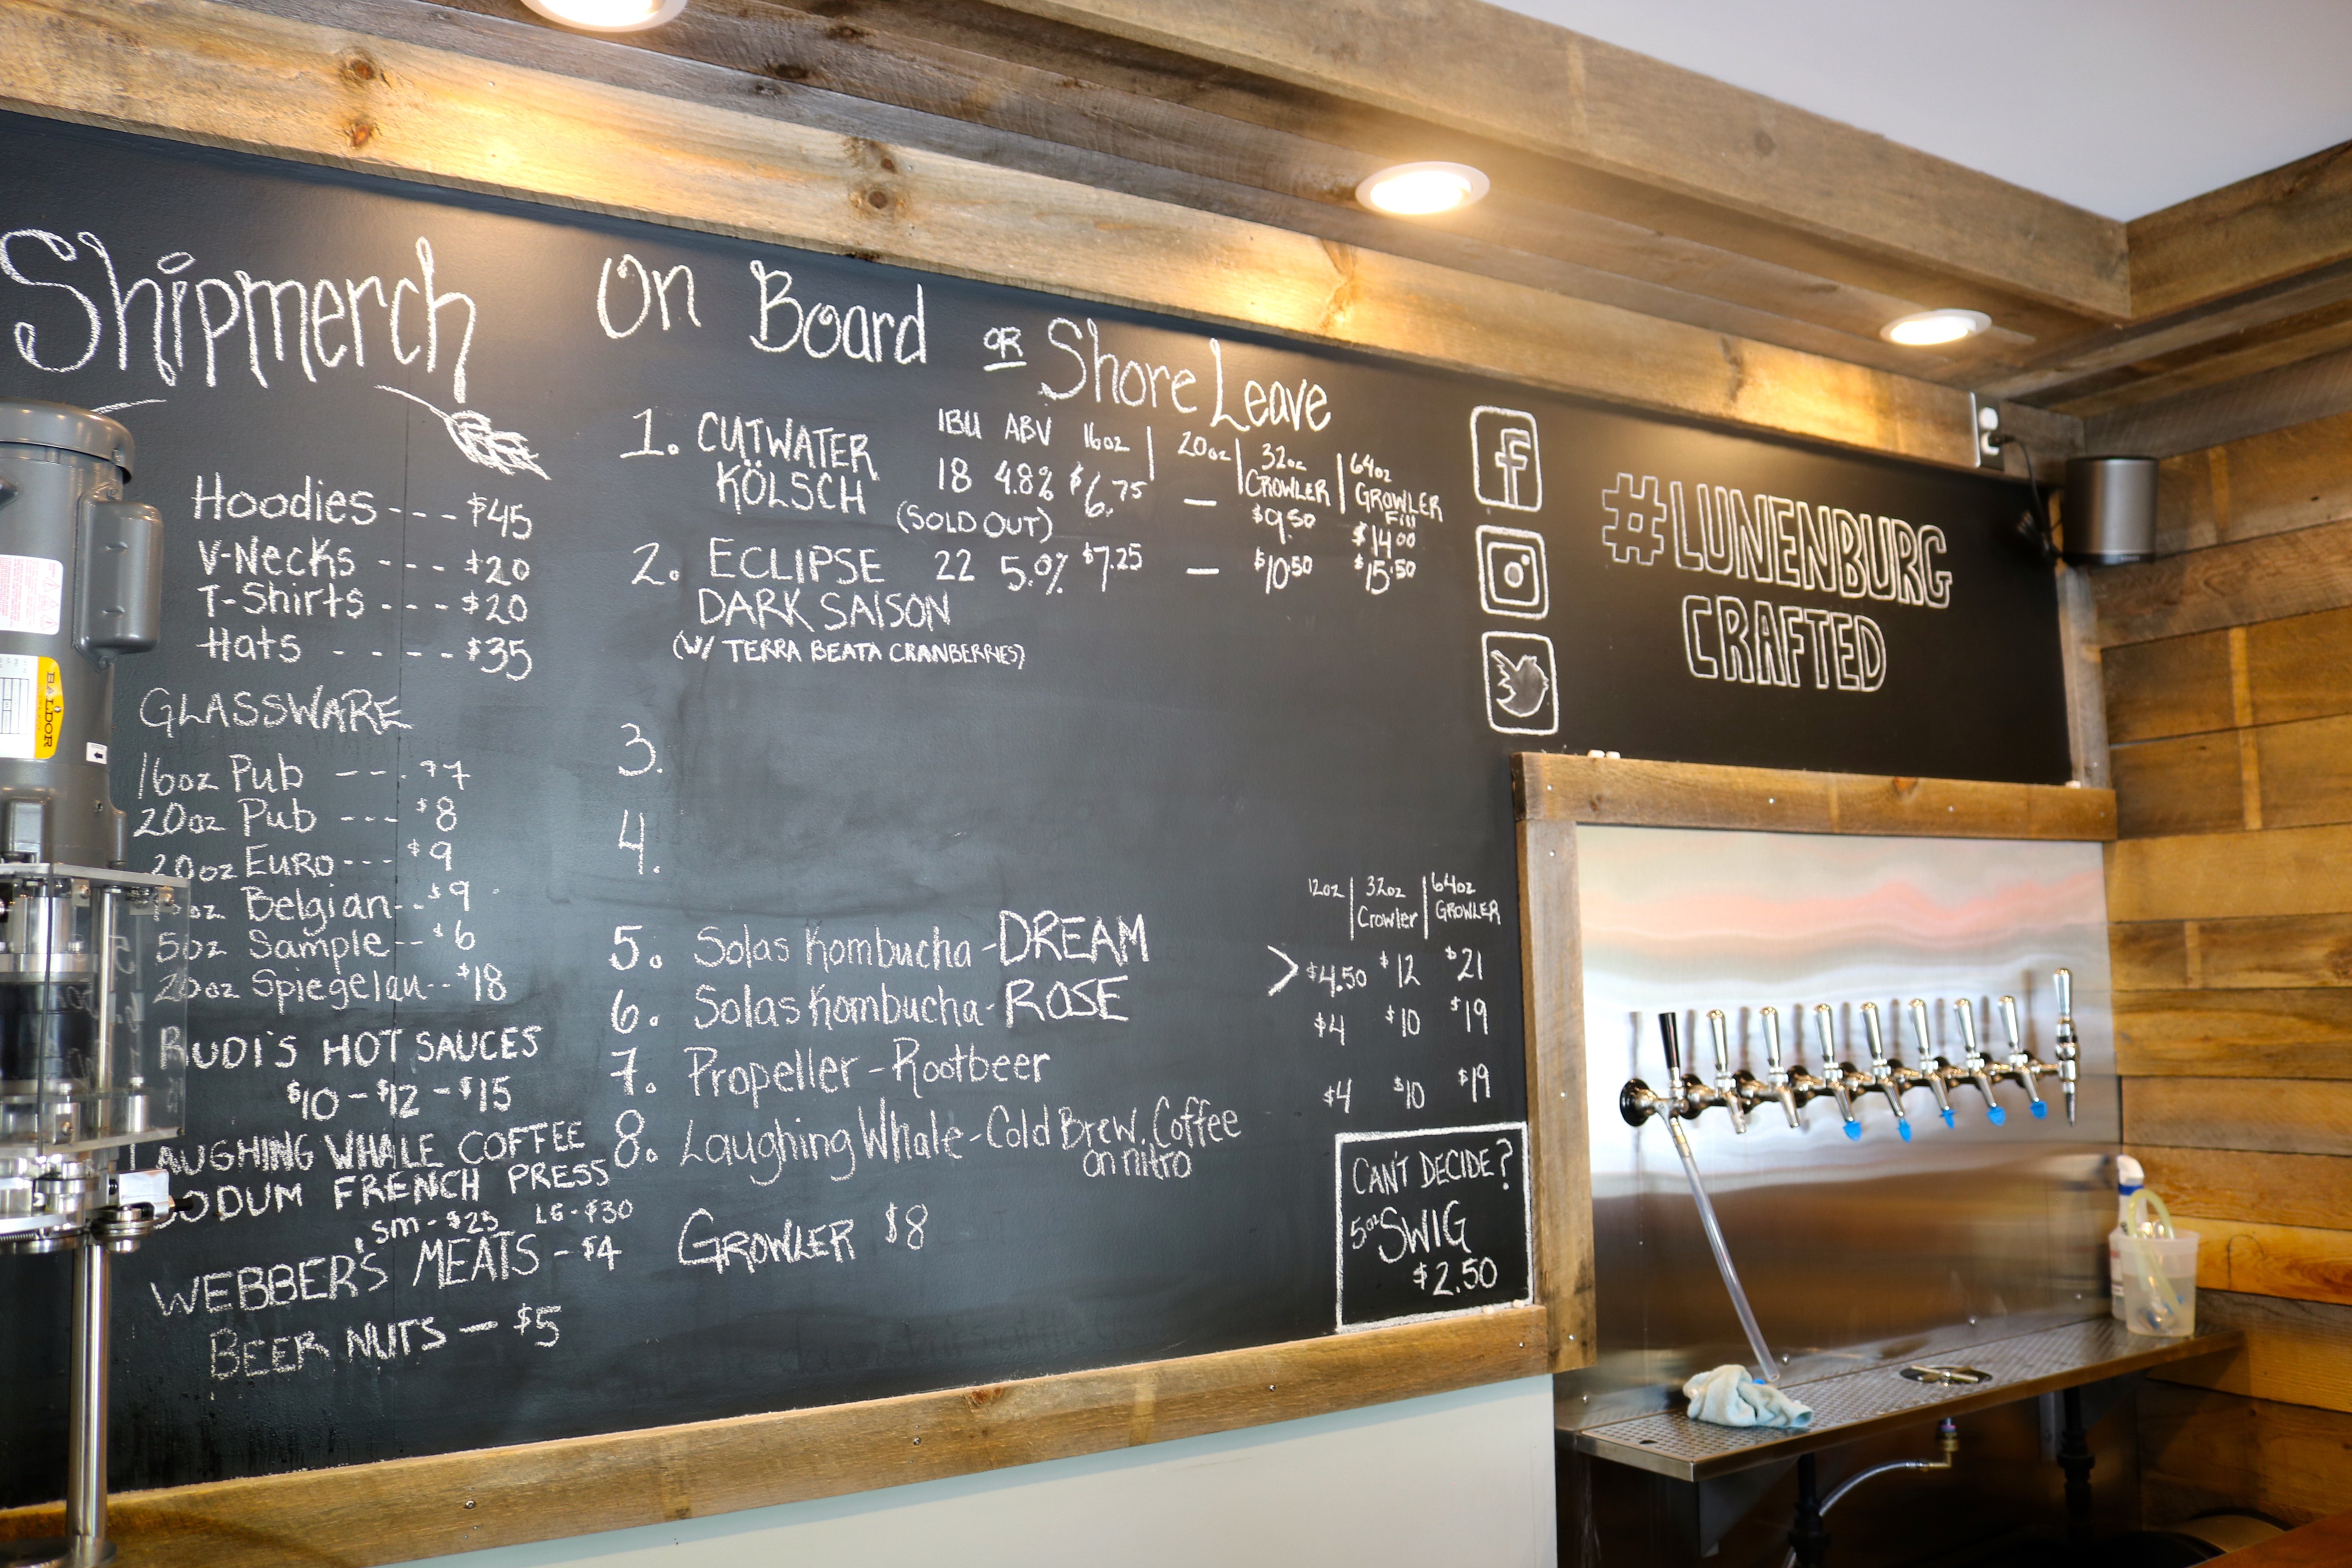 Shipmerch
Hoodies --- $45
V-Necks --- $20
T-Shirts --- $20
Hats - - -- $35
GLASSWARE
16oz Pub --- $7
20oz Pub --- $8
20oz EURO --- $9
oz Belgian-- $9
5oz Sample -- $6
20oz Spiegelau-- $18
RUDI'S HOT SAUCES
$10 - $12 - $15
LAUGHING WHALE COFFEE
BODUM FRENCH PRESS
sm - $25 LG - $30
WEBBER'S MEATS - $4
BEER NUTS - $5
On Board OR Shore Leave
IBU ABV 16oz | 20oz | 32oz CROWLER | 64oz GROWLER Fill
1. CUTWATER KÖLSCH 18 4.8% $6.75 — $9.50 $14.00
(SOLD OUT)
2. ECLIPSE 22 5.0% $7.25 — $10.50 $15.50
DARK SAISON
(W/ TERRA BEATA CRANBERRIES)
3.
4.
12oz | 32oz Crowler | 64oz GROWLER
5. Solas Kombucha - DREAM
6. Solas Kombucha - ROSE
> $4.50 $12 $21
7. Propeller - Rootbeer $4 $10 $19
8. Laughing Whale - Cold Brew Coffee $4 $10 $19
on nitro
GROWLER $8
CAN'T DECIDE?
5oz SWIG
$2.50
f
#LUNENBURG
CRAFTED
BALDOR